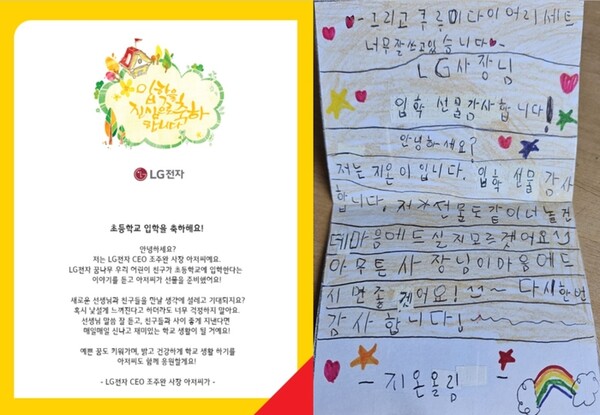 입학을
진심으로 축하
합니다
LG전자
초등학교 입학을 축하해요!
안녕하세요?
저는 LG전자 CEO 조주완 사장 아저씨예요.
LG전자 꿈나무 우리 어린이 친구가 초등학교에 입학한다는
이야기를 듣고 아저씨가 선물을 준비했어요!
새로운 선생님과 친구들을 만날 생각에 설레고 기대되지요?
혹시 낯설게 느껴진다고 하더라도 너무 걱정하지 말아요.
선생님 말씀 잘 듣고, 친구들과 사이 좋게 지낸다면
매일매일 신나고 재미있는 학교 생활이 될 거예요!
예쁜 꿈도 키워가며, 밝고 건강하게 학교 생활 하기를
아저씨도 함께 응원할게요!
- LG전자 CEO 조주완 사장 아저씨가 -
- 그리고 쿠루미 다이어리 세트
너무 잘 쓰고 있습니다
LG사장님
입학 선물 감사합니다!
안녕하세요?
저는 지온이입니다. 입학 선물 감사
합니다. 저가 선물도 같이 너놀건
데 마음에 드실지 모르겠어요
아무튼 사장님이 마음에 드
시면 좋겠어요! ~ 다시 한번
감사합니다
- 지온올림 -